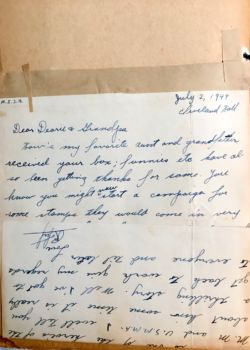 M.S.S.B.
July 2, 1944
Cleveland Hall
Dear Dearie & Grandpa
How's my favorite aunt and grandfather
received your box; funnies etc have al
so been getting thanks for same. You
know you might now start a campaign for
some stamps they would come in very
and U.S.M.M.A. I will tell you
some time how it is really
thrilling story. Well I've got to
get back to work give my regards
to everyone and tell
Love